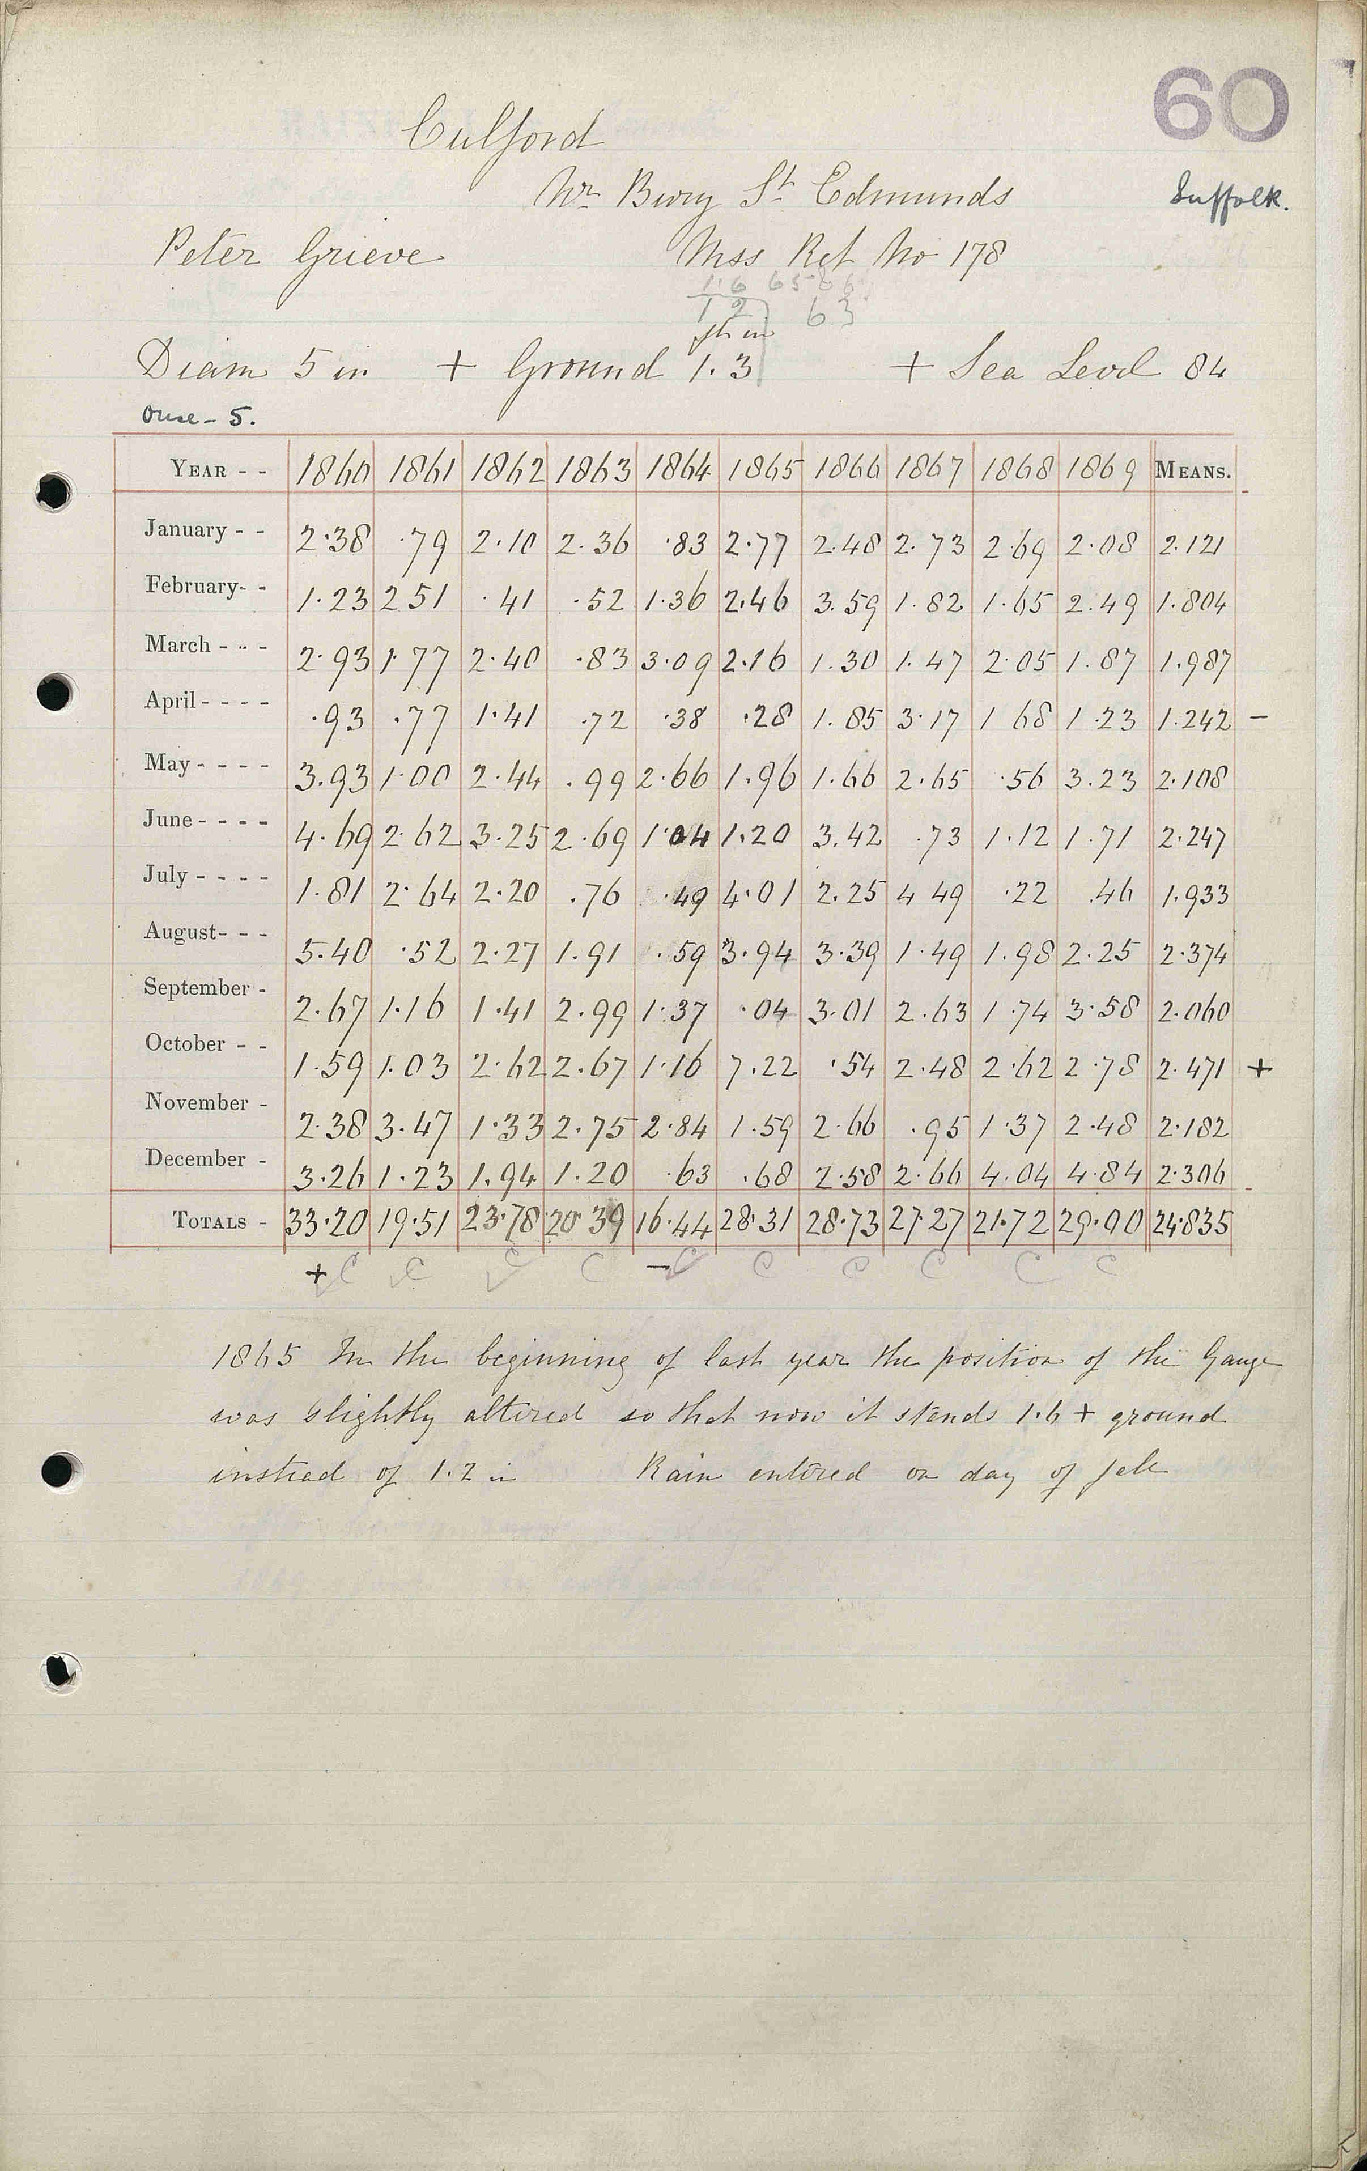 60
Culford
Nr Bury St Edmunds
Suffolk.
Peter Grieve Mss Ref No 178
1.6 65 8 6
1 2 63
ft in
Diam 5 in + Ground 1.3 + Sea Level 84
Ouse - 5.
YEAR - - 1860 1861 1862 1863 1864 1865 1866 1867 1868 1869 MEANS.
January - - 2.38 .79 2.10 2.36 .83 2.77 2.48 2.73 2.69 2.08 2.121
February- - 1.23 2 51 .41 .52 1.36 2.46 3.59 1.82 1.65 2.49 1.804
March - - - 2.93 1.77 2.40 .83 3.09 2.16 1.30 1.47 2.05 1.87 1.987
April - - - - .93 .77 1.41 .72 .38 .28 1.85 3.17 1 68 1.23 1.242 -
May - - - - 3.93 1.00 2.44 .99 2.66 1.96 1.66 2.65 .56 3.23 2.108
June - - - - 4.69 2.62 3.25 2.69 1.04 1.20 3.42 .73 1.12 1.71 2.247
July - - - - 1.81 2.64 2.20 .76 .49 4.01 2.25 4 49 .22 .46 1.933
August- - - 5.40 .52 2.27 1.91 .59 3.94 3.39 1.49 1.98 2.25 2.374
September - 2.67 1.16 1.41 2.99 1.37 .04 3.01 2.63 1.74 3.58 2.060
October - - 1.59 1.03 2.62 2.67 1.16 7.22 .54 2.48 2.62 2.78 2.471 +
November - 2.38 3.47 1.33 2.75 2.84 1.59 2.66 .95 1.37 2.48 2.182
December - 3.26 1.23 1.94 1.20 .63 .68 2.58 2.66 4.04 4.84 2.306
TOTALS - 33.20 19.51 23.78 20.39 16.44 28.31 28.73 27.27 21.72 29.00 24.835
+ C C C C - C C C C C C
1865 In the beginning of last year the position of the Gauge
was slightly altered so that now it stands 1.6 + ground
instead of 1.2 in Rain entered on day of fall